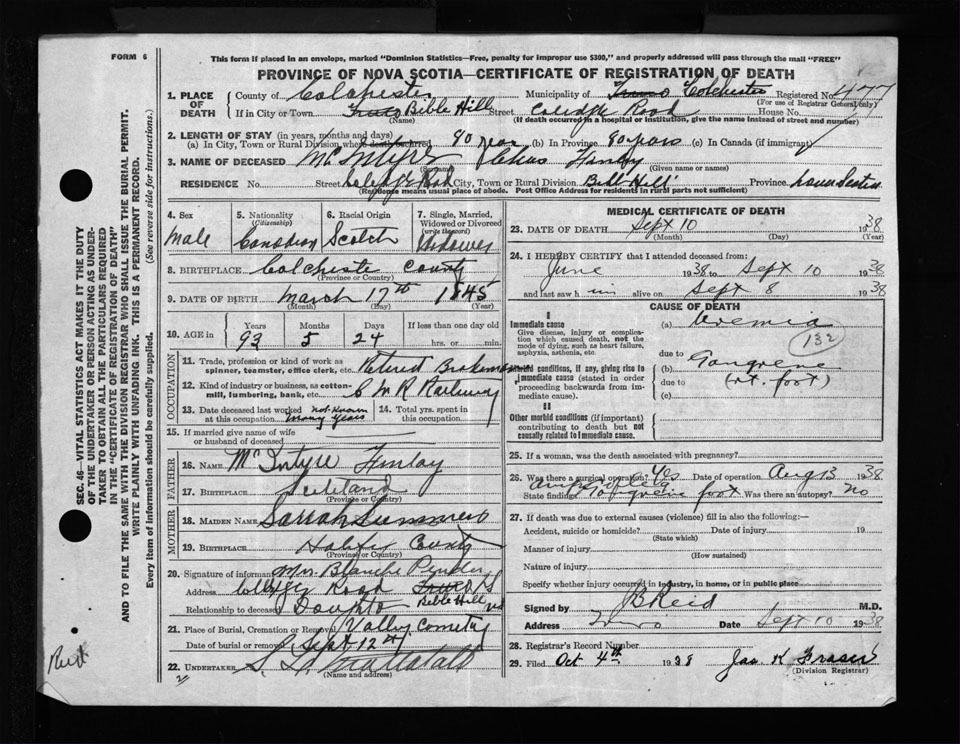 FORM 6
This form if placed in an envelope, marked "Dominion Statistics—Free, penalty for improper use $300," and properly addressed will pass through the mail "FREE"
PROVINCE OF NOVA SCOTIA—CERTIFICATE OF REGISTRATION OF DEATH
1. PLACE OF DEATH County of Colchester Municipality of Truro Colchester Registered No. 477
(For use of Registrar General only)
If in City or Town Truro Bible Hill Street College Road House No.
(Name) (If death occurred in a hospital or institution, give the name instead of street and number)
2. LENGTH OF STAY (in years, months and days)
(a) In City, Town or Rural Division where death occurred 90 year (b) In Province 90 years (c) In Canada (if immigrant)
3. NAME OF DECEASED McIntyre Chas Finlay
(Surname) (Given name or names)
RESIDENCE No. Street College Road City, Town or Rural Division Bible Hill Province Nova Scotia
(Residence means usual place of abode. Post Office Address for residents in rural parts not sufficient)
4. Sex Male
5. Nationality (Citizenship) Canadian
6. Racial Origin Scotch
7. Single, Married, Widowed or Divorced (write the word) Widower
8. BIRTHPLACE Colchester County
(Province or Country)
9. DATE OF BIRTH March 17th 1845
(Month) (Day) (Year)
10. AGE in Years 93 Months 5 Days 24 If less than one day old hrs. or min.
OCCUPATION
11. Trade, profession or kind of work as spinner, teamster, office clerk, etc. Retired Brakeman
12. Kind of industry or business, as cotton-mill, lumbering, bank, etc. C N R Railway
13. Date deceased last worked at this occupation not known many years
14. Total yrs. spent in this occupation
15. If married give name of wife or husband of deceased
FATHER
16. NAME McIntyre Finlay
17. BIRTHPLACE Scotland
(Province or Country)
MOTHER
18. MAIDEN NAME Sarrah
19. BIRTHPLACE Halifax County
(Province or Country)
20. Signature of informant Mrs Blanche
Address College Road Truro Bible Hill NS
Relationship to deceased Daughter
21. Place of Burial, Cremation or Removal Valley Cemetry
Date of burial or removal Sept 12th
22. UNDERTAKER
(Name and address)
MEDICAL CERTIFICATE OF DEATH
23. DATE OF DEATH Sept 10 1938
(Month) (Day) (Year)
24. I HEREBY CERTIFY that I attended deceased from:
June 1938 to Sept 10 1938
and last saw h im alive on Sept 8 1938
CAUSE OF DEATH
I
Immediate cause
Give disease, injury or complication which caused death, not the mode of dying, such as heart failure, asphyxia, asthenia, etc.
(a) Uremia
132
due to
Morbid conditions, if any, giving rise to immediate cause (stated in order proceeding backwards from immediate cause).
(b) Gangrene
due to (rt. foot)
(c)
II
Other morbid conditions (if important) contributing to death but not causally related to immediate cause.
25. If a woman, was the death associated with pregnancy?
26. Was there a surgical operation? Yes Date of operation Aug 13 1938
State findings Was there an autopsy? No
27. If death was due to external causes (violence) fill in also the following:—
Accident, suicide or homicide? Date of injury 19
(State which)
Manner of injury
(How sustained)
Nature of injury
Specify whether injury occurred in industry, in home, or in public place
Signed by Reid M.D.
Address Truro Date Sept 10 1938
28. Registrar's Record Number
29. Filed Oct 4th 1938 Jas. K Fraser
(Division Registrar)
SEC. 46—VITAL STATISTICS ACT MAKES IT THE DUTY
OF THE UNDERTAKER OR PERSON ACTING AS UNDER-
TAKER TO OBTAIN ALL THE PARTICULARS REQUIRED
IN THE "CERTIFICATE OF REGISTRATION OF DEATH"
AND TO FILE THE SAME WITH THE DIVISION REGISTRAR WHO SHALL ISSUE THE BURIAL PERMIT.
WRITE PLAINLY WITH UNFADING INK. THIS IS A PERMANENT RECORD.
Every item of information should be carefully supplied. (See reverse side for instructions.)